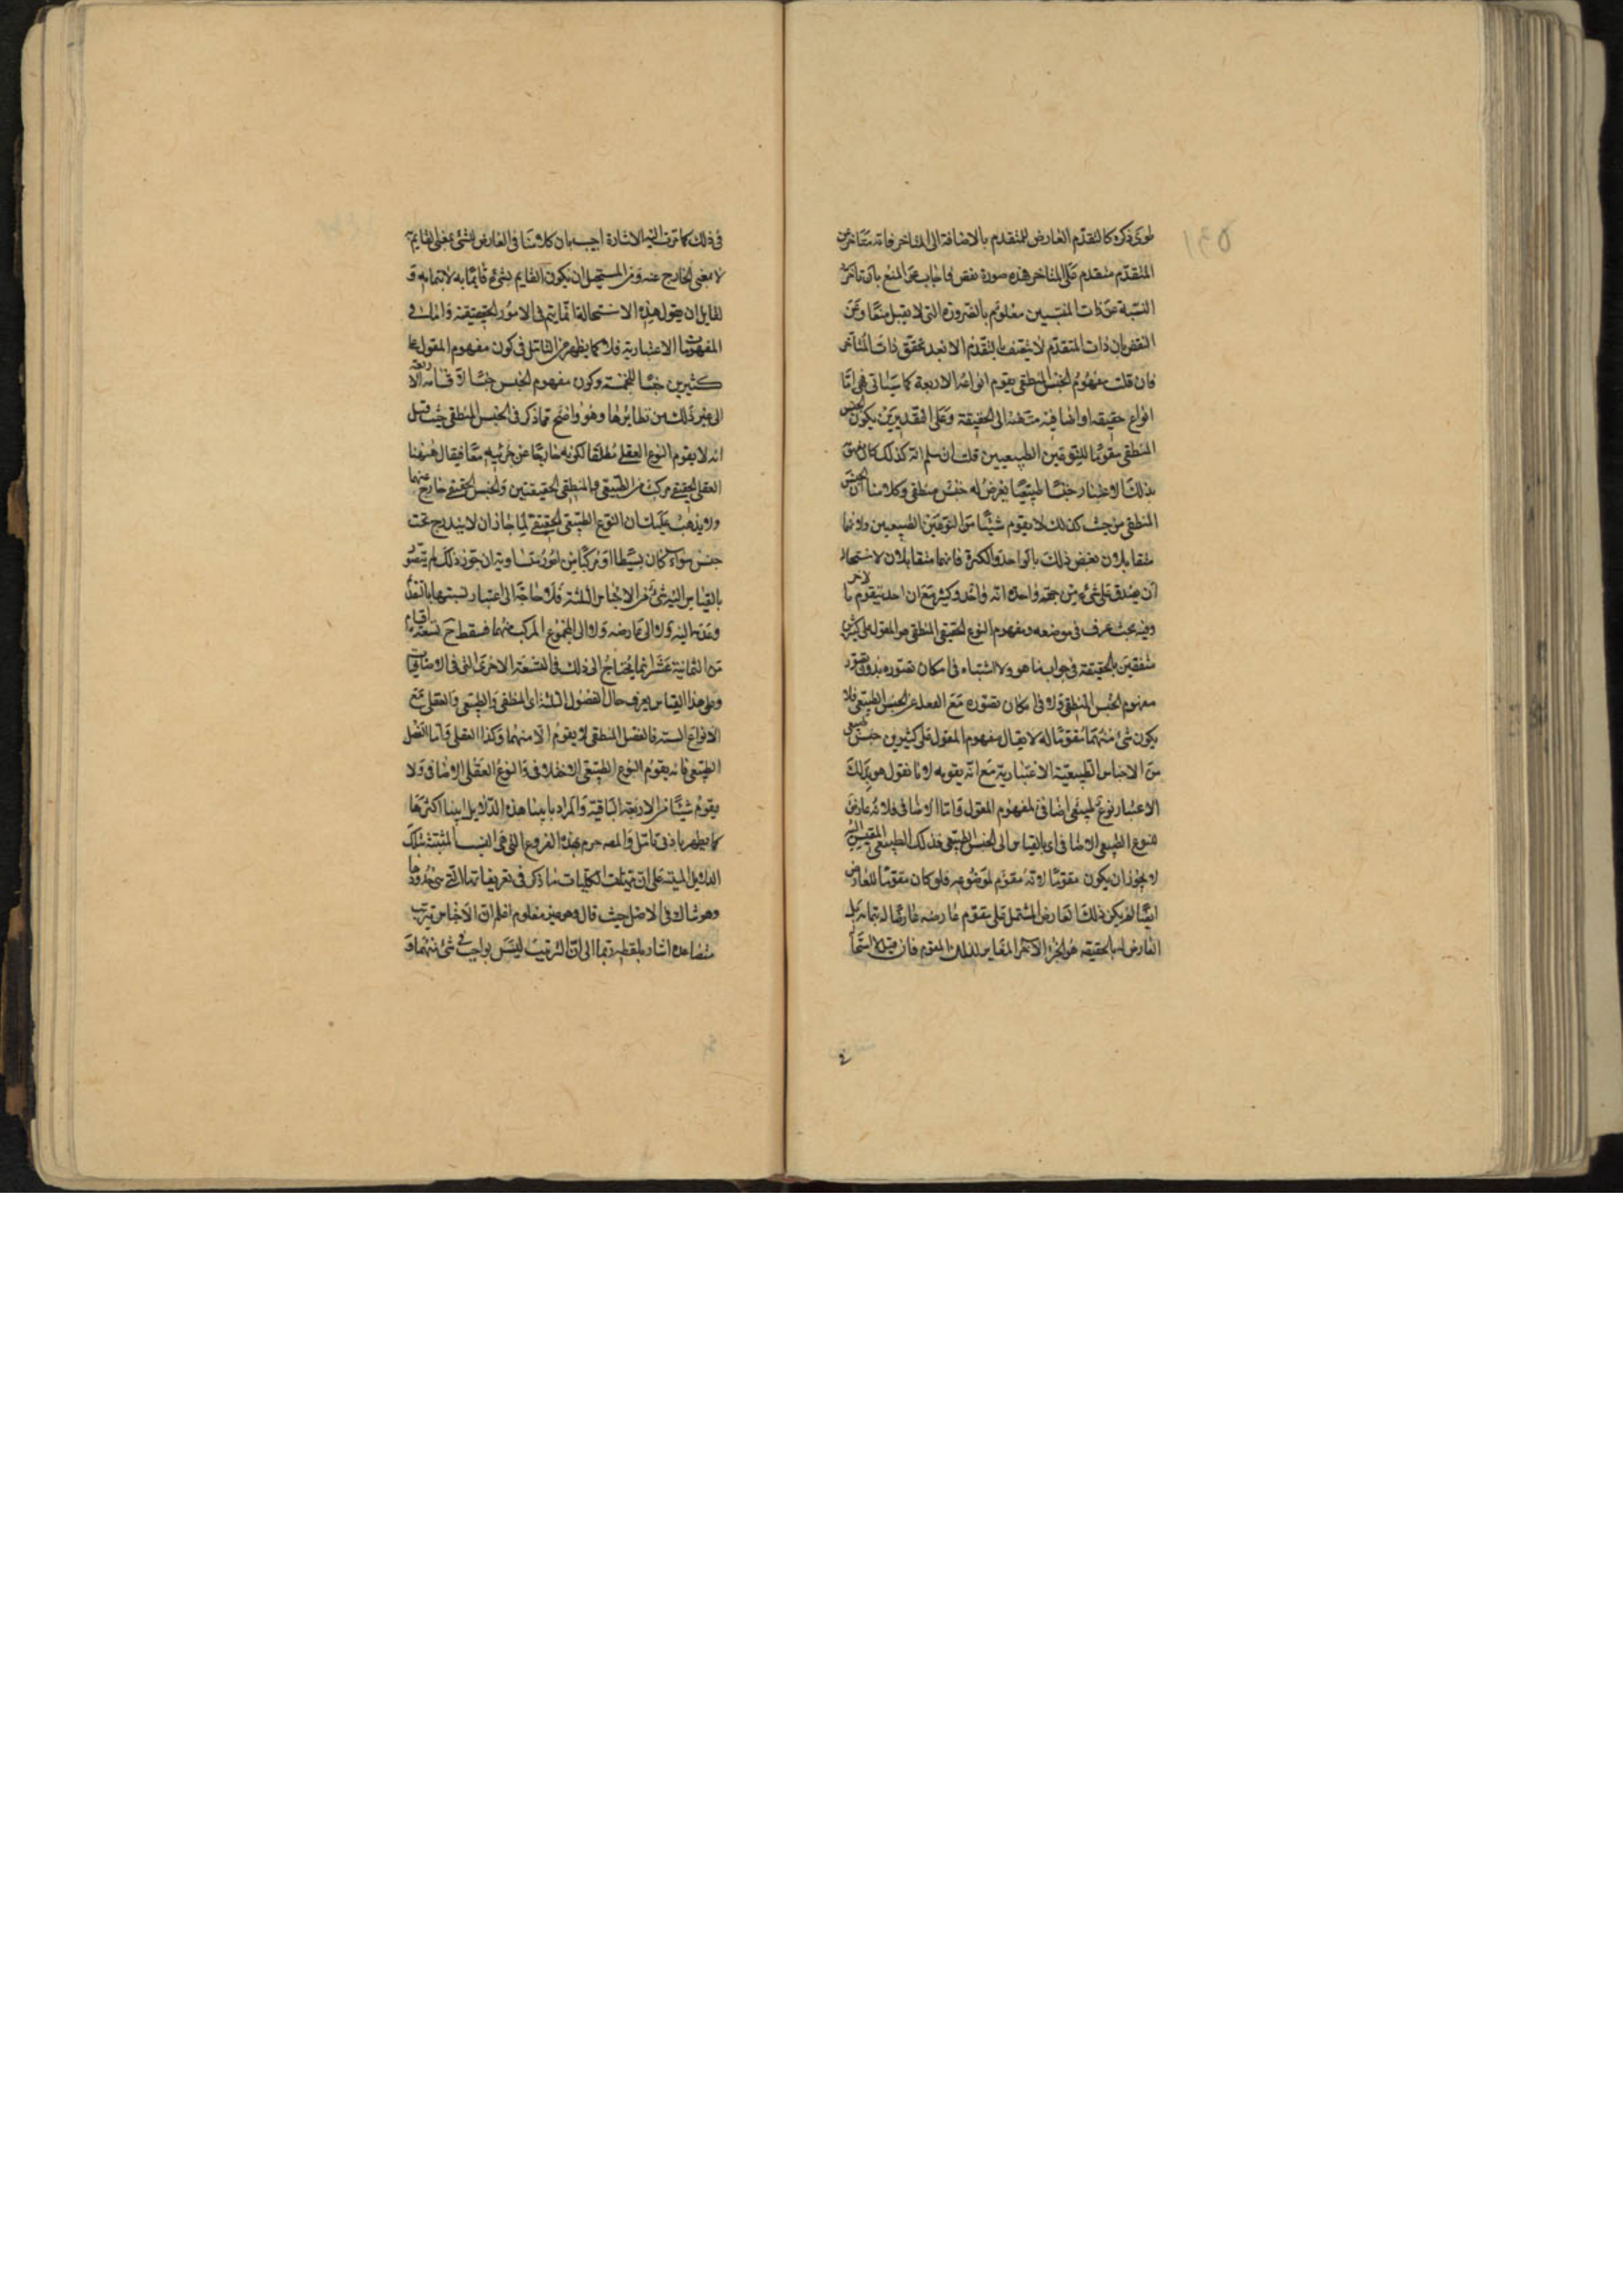 طوى ذكره كالتقدم العارض للمتقدم بالاضافة الى المتاخر فانه متاخر عن
المتقدم متقدم على المتاخر هذه صورة نقض فاجاب عن المنع بان تاخر
النسبة عن ذات المنتسبين معلوم بالضرورة التى لا يقبل منعا وعن
النقض بان ذات المتقدم لا يتصف بالتقدم الا بعد تحقق ذات المتاخر
فان قلت مفهوم الجنس المنطقى يقوم انواعه الاربعة كما سياتى فهى اما
انواع حقيقة او اضافية منتهية الى الحقيقة وعلى التقديرين يكون الجنس
المنطقى مقوما للنوعين الطبيعيين قلت ان سلم انه كذلك كان
بذلك الاعتبار جنسا طبيعيا يعرض له جنس منطقى وكلامنا ان الجنس
المنطقى من حيث كذلك لا يقوم شيئا من النوعين الطبيعيين ولانهما
متقابلان نقض ذلك بالواحد والكثرة فانهما متقابلان لاستحالة
ان يصدق على شىء من جهة واحدة انه واحد وكثير مع ان احدهما يتقوم بالاخر
وفيه بحث عرف فى موضعه ومفهوم النوع الحقيقى المنطقى هو المقول على كثيرين
متفقين بالحقيقة فى جواب ما هو ولا اشتباه فى امكان تصوره بدون تصور
مفهوم الجنس المنطقى ولا فى امكان تصوره مع الغفلة عن الجنس الطبيعى فلا
يكون شىء منهما مقوما له لا يقال مفهوم المقول على كثيرين جنس طبيعى
من الاجناس الطبيعية الاعتبارية مع انه يقومه لانا نقول هو بذلك
الاعتبار نوع طبيعى اضافى لمفهوم المقول واما الاضافى فلانه عارض
للنوع الطبيعى الاضافى اى بالقياس الى الجنس الطبيعى فذلك الطبيعى المقيس اليه
لا يجوز ان يكون مقوما لانه مقوم لموضوعه فلو كان مقوما للعارض
ايضا لم يكن ذلك العارض المشتمل على مقوم عارضه عارضا له بتمامه بل
العارض له بالحقيقة هو الجزء الاخر المغاير لذلك المقوم فان قيل لا استحالة
فى ذلك كما مرت اليه الاشارة اجيب بان كلامنا فى العارض للشىء بمعنى القايم به
لا بمعنى الخارج عنه ومن المستحيل ان يكون القايم بشىء قايما به لا بتمامه و
لقايل ان يقول هذه الاستحالة انما يتم فى الامور الحقيقية واما فى
المفهومات الاعتبارية فلا كما يظهر من التامل فى كون مفهوم المقول على
كثيرين جنسا للخمسة وكون مفهوم الجنس جنسا لاقسامه الاربعة
الى غير ذلك من نظايرها وهو واضح مما ذكر فى الجنس المنطقى حيث قيل
انه لا يقوم النوع العقلى مطلقا لكونه خارجا عن جزئيه معا فيقال ههنا
العقلى الحقيقى مركب من الطبيعى والمنطقى الحقيقيين والجنس الحقيقى خارج عنهما
ولا يذهب عليك ان النوع الطبيعى الحقيقى لما جاز ان لا يندرج تحت
جنس سواء كان بسيطا او مركبا من امور متساوية ان جوز ذلك لم يتصور
بالقياس اليه شىء من الاجناس الثلثة فلا حاجة الى اعتبار نسبتها بالتقويم
وعدمه اليه ولا الى عارضه ولا الى المجموع المركب منهما فسقط ح تسعة اقسام
من الثمانية عشر انما يحتاج الى ذلك فى التسعة الاخرى التى فى الاضافيات
وعلى هذا القياس يعرف حال الفصول الثلثة اى المنطقى والطبيعى والعقلى مع
الانواع الستة فالفصل المنطقى لا يقوم الا منهما وكذا العقلى واما الفصل
الطبيعى فانه يقوم النوع الطبيعى الاضافى والنوع العقلى الاضافى ولا
يقوم شيئا من الاربعة الباقية والمراد بابينا هذه الدلايل ابينا اكثرها
كما يظهر بادنى تامل والمصه جزم بهذه الفروع التى هى المثبتة بتلك
الدلايل المبنية على ان مهيات الكليات ما ذكر فى تعريفاتها التى هى حدودها
وهو شاك فى الاصل حيث قال وهو غير معلوم اعلم ان الاجناس يترتب
متصاعدة اشار بلفظة ربما الى ان الترتيب ليس بواجب فى شىء منهما و